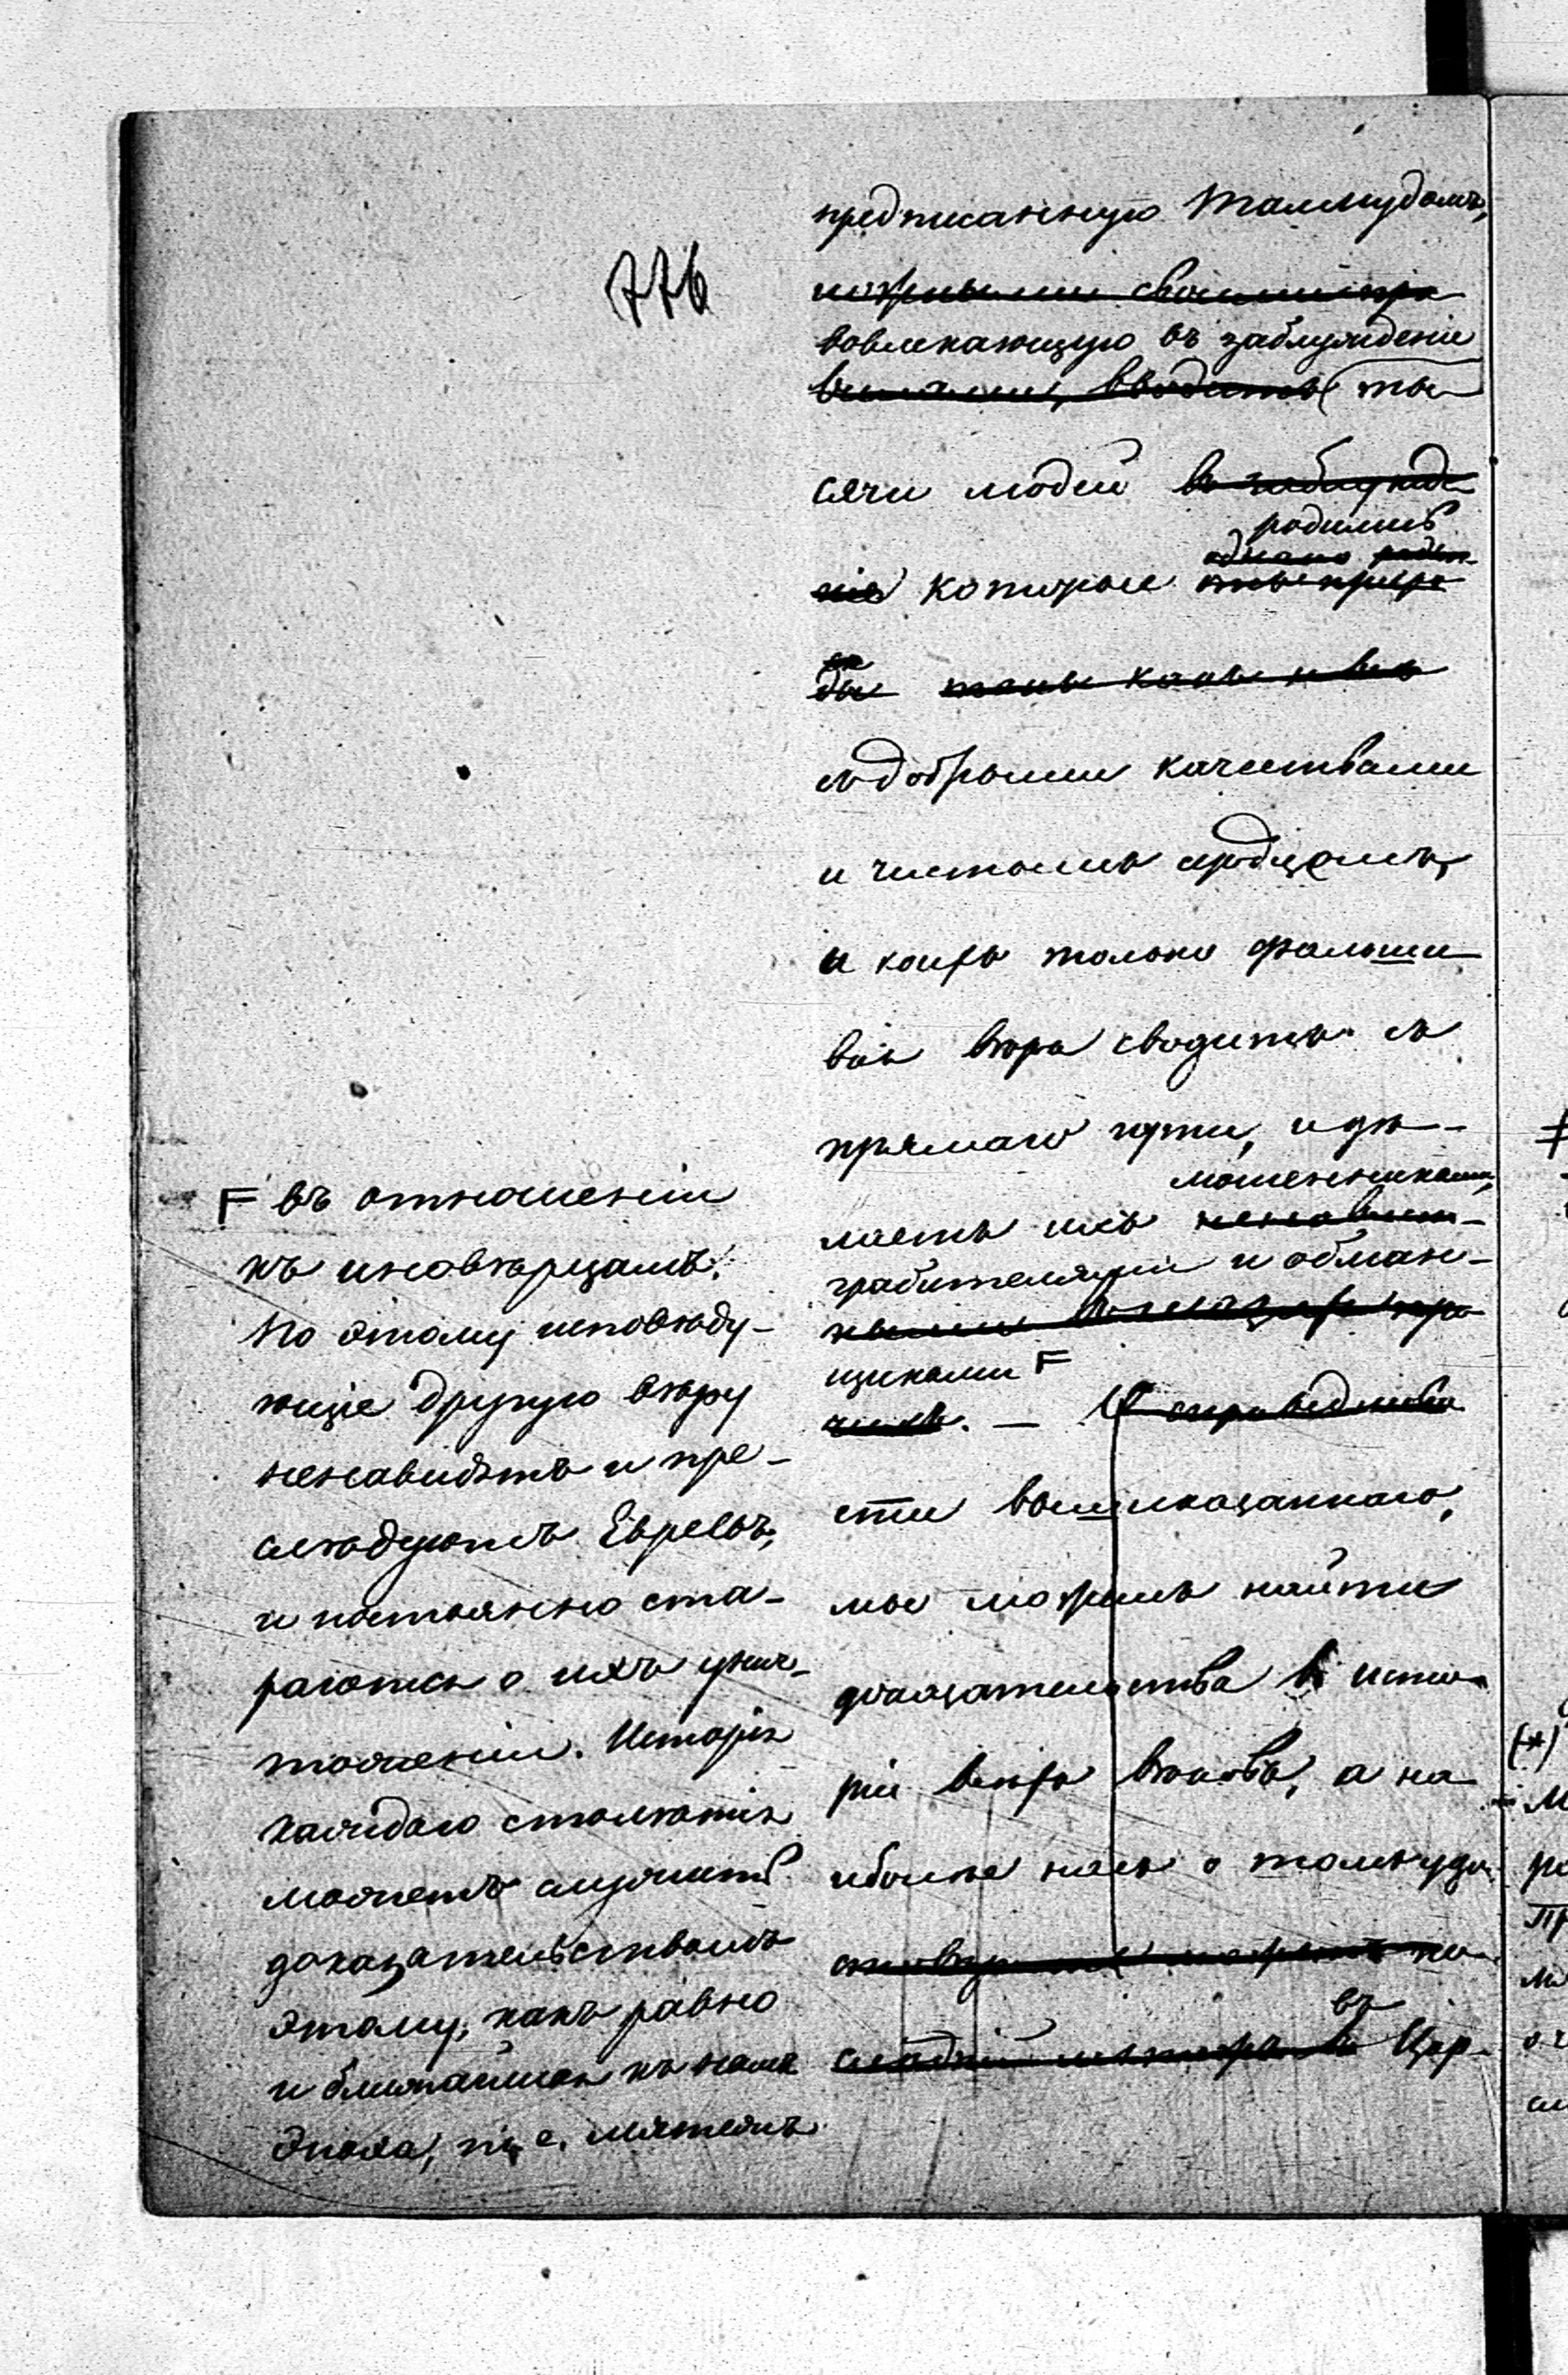 776
предписанную Талмудомъ,
вовлекающую въ заблужденіе
вводитъ ты-
сячи людей въ заблужде
родились
однако
ніе которые
ды
съ добрыми качествами
и чистымъ сердцемъ,
и коихъ только фальши-
вая вѣра сводитъ съ
прямаго пути, и дѣ-
мошенниками,
лаетъ ихъ
грабителями и обман-
щиками F
чихъ. — О справедливо
сти вышесказаннаго,
мы можемъ найти
доказательства въ исто-
ріи всѣхъ вѣковъ, а на
иболѣе насъ о томъ удо-
въ
Цар-
F въ отношеніи
къ иновѣрцамъ.
По этому исповѣду-
ющіе другую вѣру
ненавидятъ и пре-
слѣдуютъ Евреевъ,
и постоянно ста-
раются о ихъ унич-
тоженіи. Исторія
каждаго столѣтія
можетъ служить
доказательствомъ
этому, какъ равно
и ближайшая къ намъ
эпоха, т. е. мятежъ